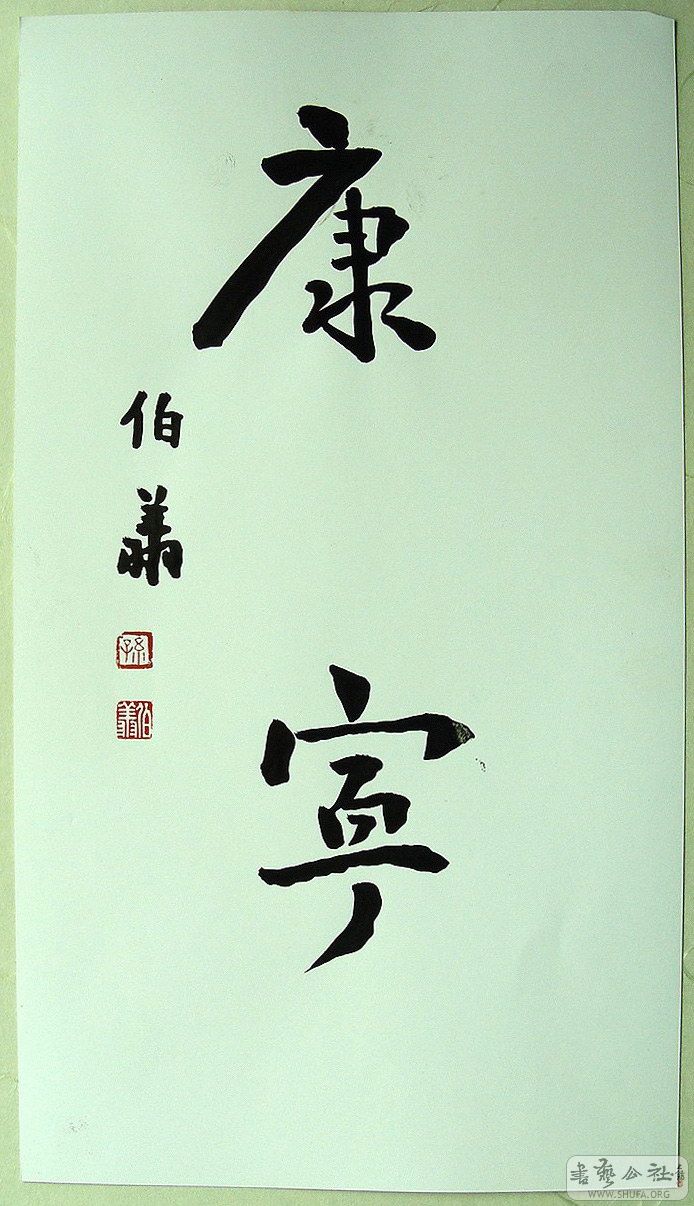 康寧
伯翔
孫
伯翔
書藝公社
WWW.SHUFA.ORG